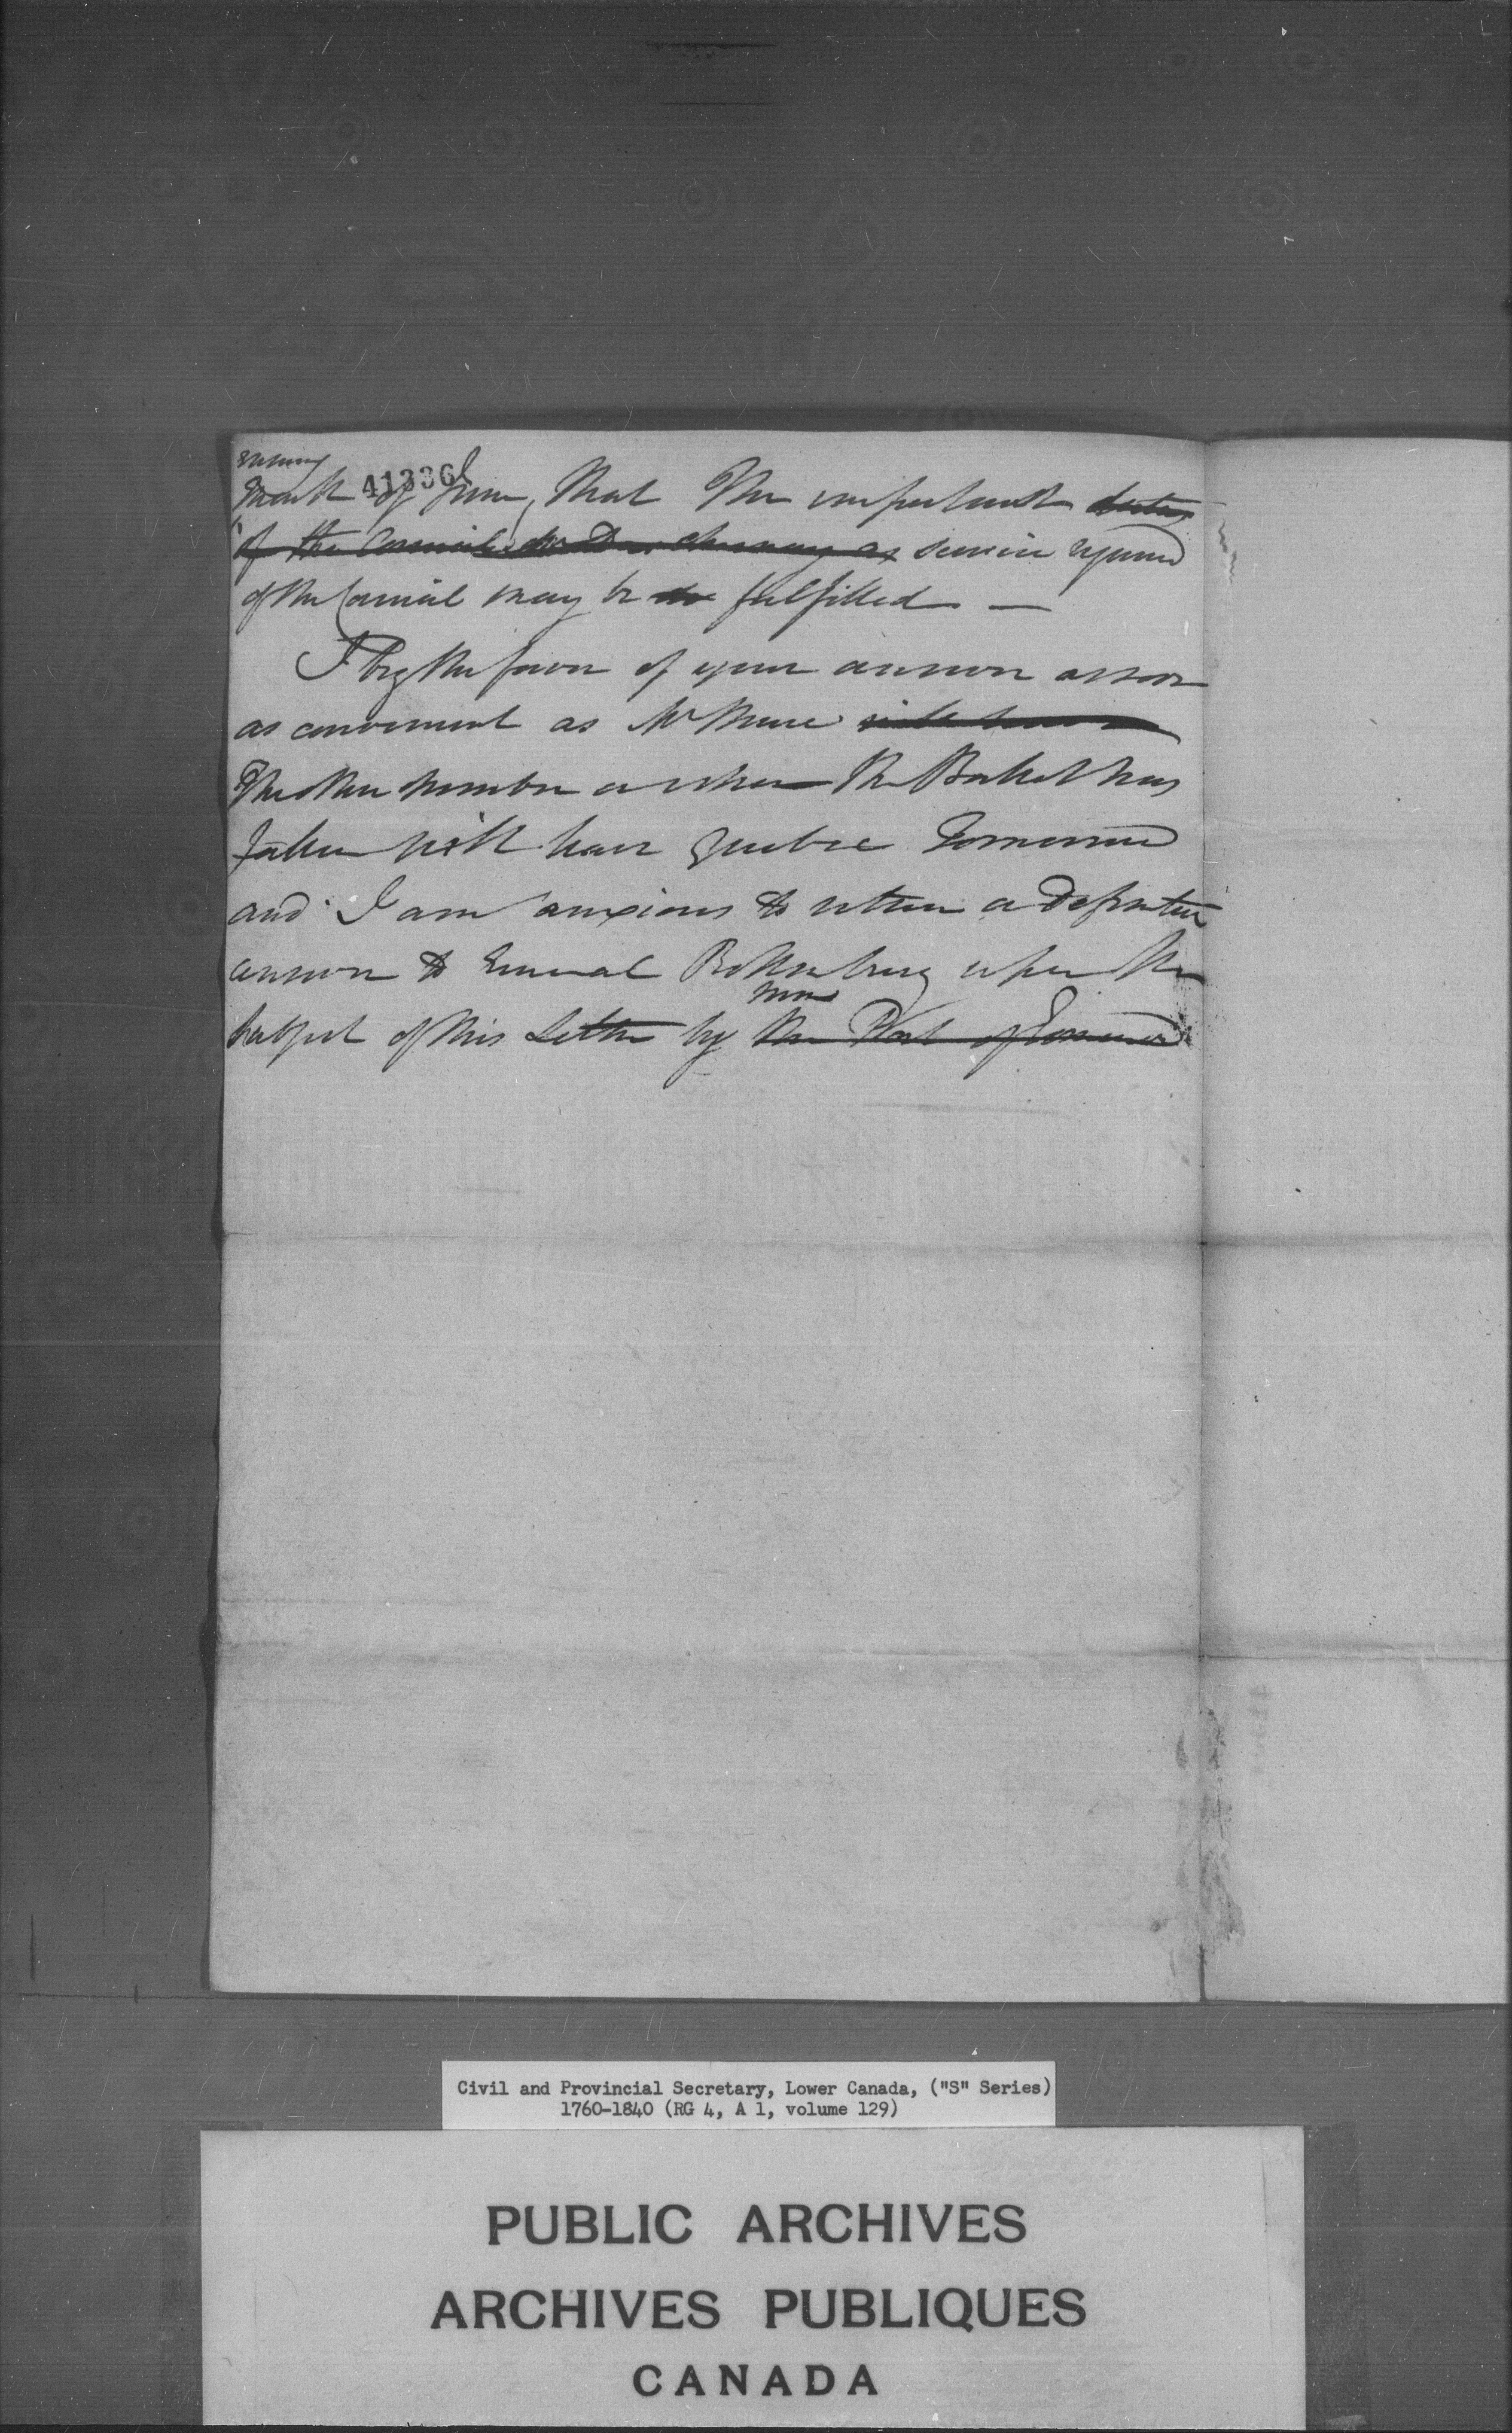 ensuing
month 41336 of June, that the important duties
of the Council as service required
of the Council may be fulfilled —
I beg the favor of your answer as soon
as convenient as Mr Mure
The other member on whom the Ballot has
fallen will leave Quebec Tomorrow
and I am anxious to return a definitive
answer to General Rottenburg upon the
subject of this Letter by the Post of Tomorrow
him
Civil and Provincial Secretary, Lower Canada, ("S" Series)
1760-1840 (RG 4, A 1, volume 129)
PUBLIC ARCHIVES
ARCHIVES PUBLIQUES
CANADA